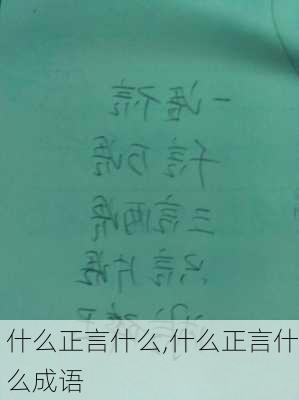 一语不言
千言万语
三言两语
只言片语
什么正言什么,什么正言什
么成语